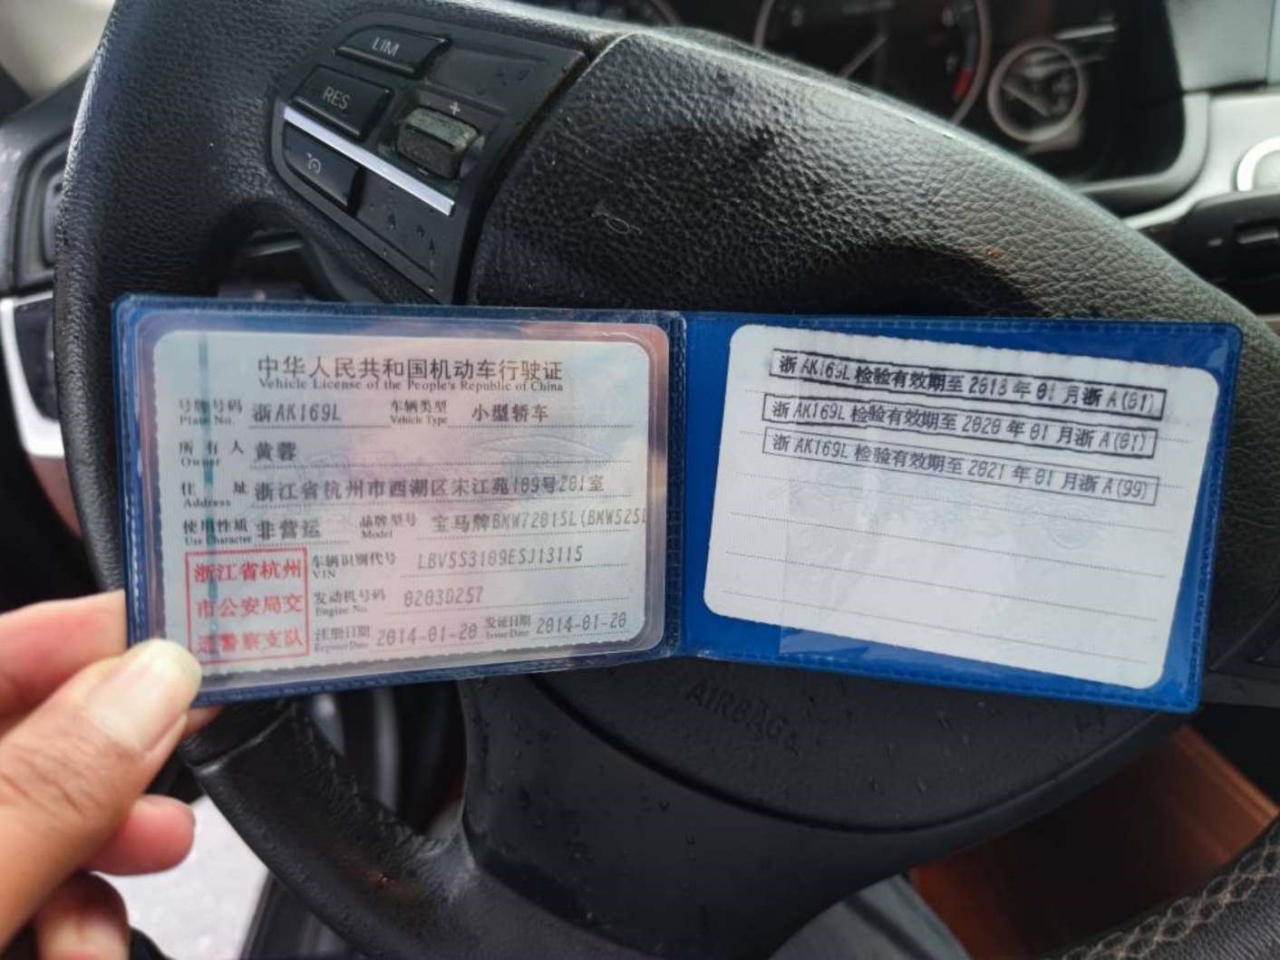 LIM
RES
+
中华人民共和国机动车行驶证
Vehicle License of the People's Republic of China
号牌号码 浙AK169L 车辆类型 小型轿车
Plate No. Vehicle Type
所有人 黄蓉
Owner
住址 浙江省杭州市西湖区宋江苑109号201室
Address
使用性质 非营运 品牌型号 宝马牌BMW7201SL(BMW525L
Use Character Model
浙江省杭州
市公安局交
通警察支队
车辆识别代号 LBV5S3109ESJ13115
VIN
发动机号码 0203D257
Engine No.
注册日期 2014-01-20 发证日期 2014-01-20
Register Date Issue Date
浙AK169L检验有效期至2018年01月浙A(01)
浙AK169L检验有效期至2020年01月浙A(01)
浙AK169L检验有效期至2021年01月浙A(99)
AIRBAG